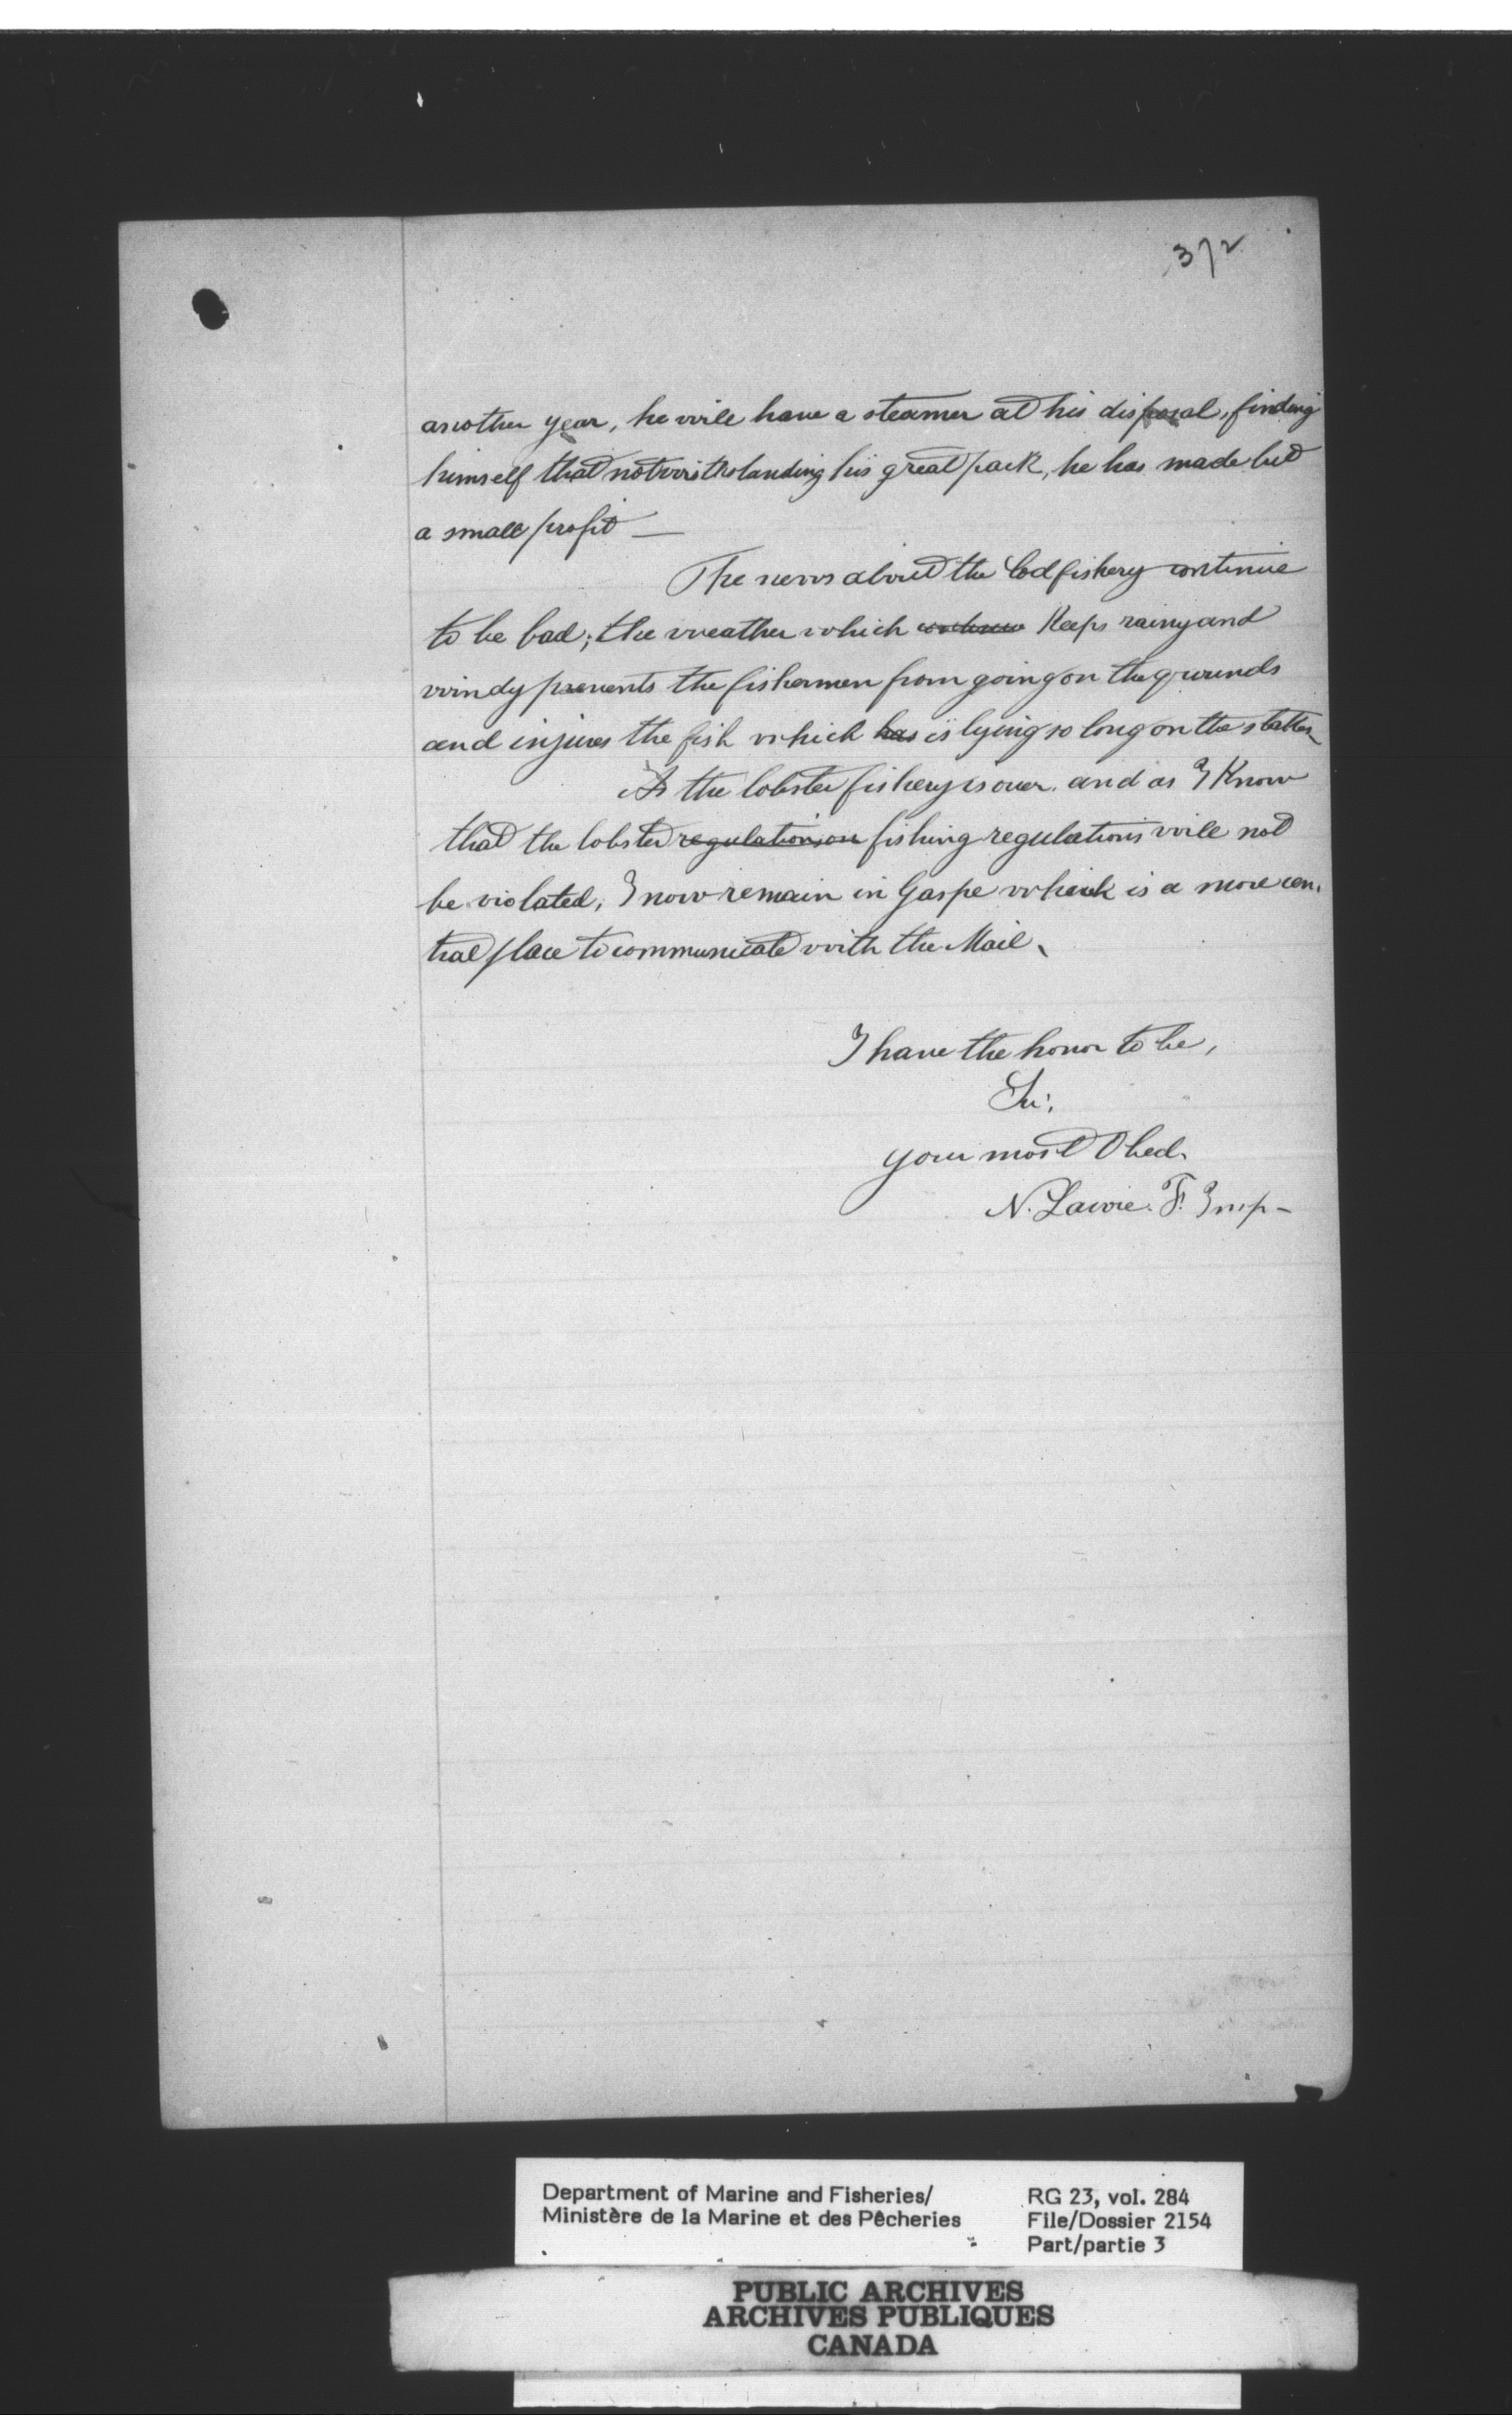 372
another year, he will have a steamer at his disposal, finding
himself that notwithstanding his great pack, he has made but
a small profit —
The news about the Cod fishery continue
to be bad; the weather which keeps rainy and
windy prevents the fishermen from going on the grounds
and injures the fish which has is lying so long on the
As the lobster fishery is over. and as I Know
that the lobster regulations on fishing regulations will not
be violated, I now remain in Gaspe which is a more cen-
tral place to communicate with the Mail.
I have the honor to be,
Sir,
your most Obed.
N. Lavoie. F. Insp-
Department of Marine and Fisheries/
Ministère de la Marine et des Pêcheries
RG 23, vol. 284
File/Dossier 2154
Part/partie 3
PUBLIC ARCHIVES
ARCHIVES PUBLIQUES
CANADA